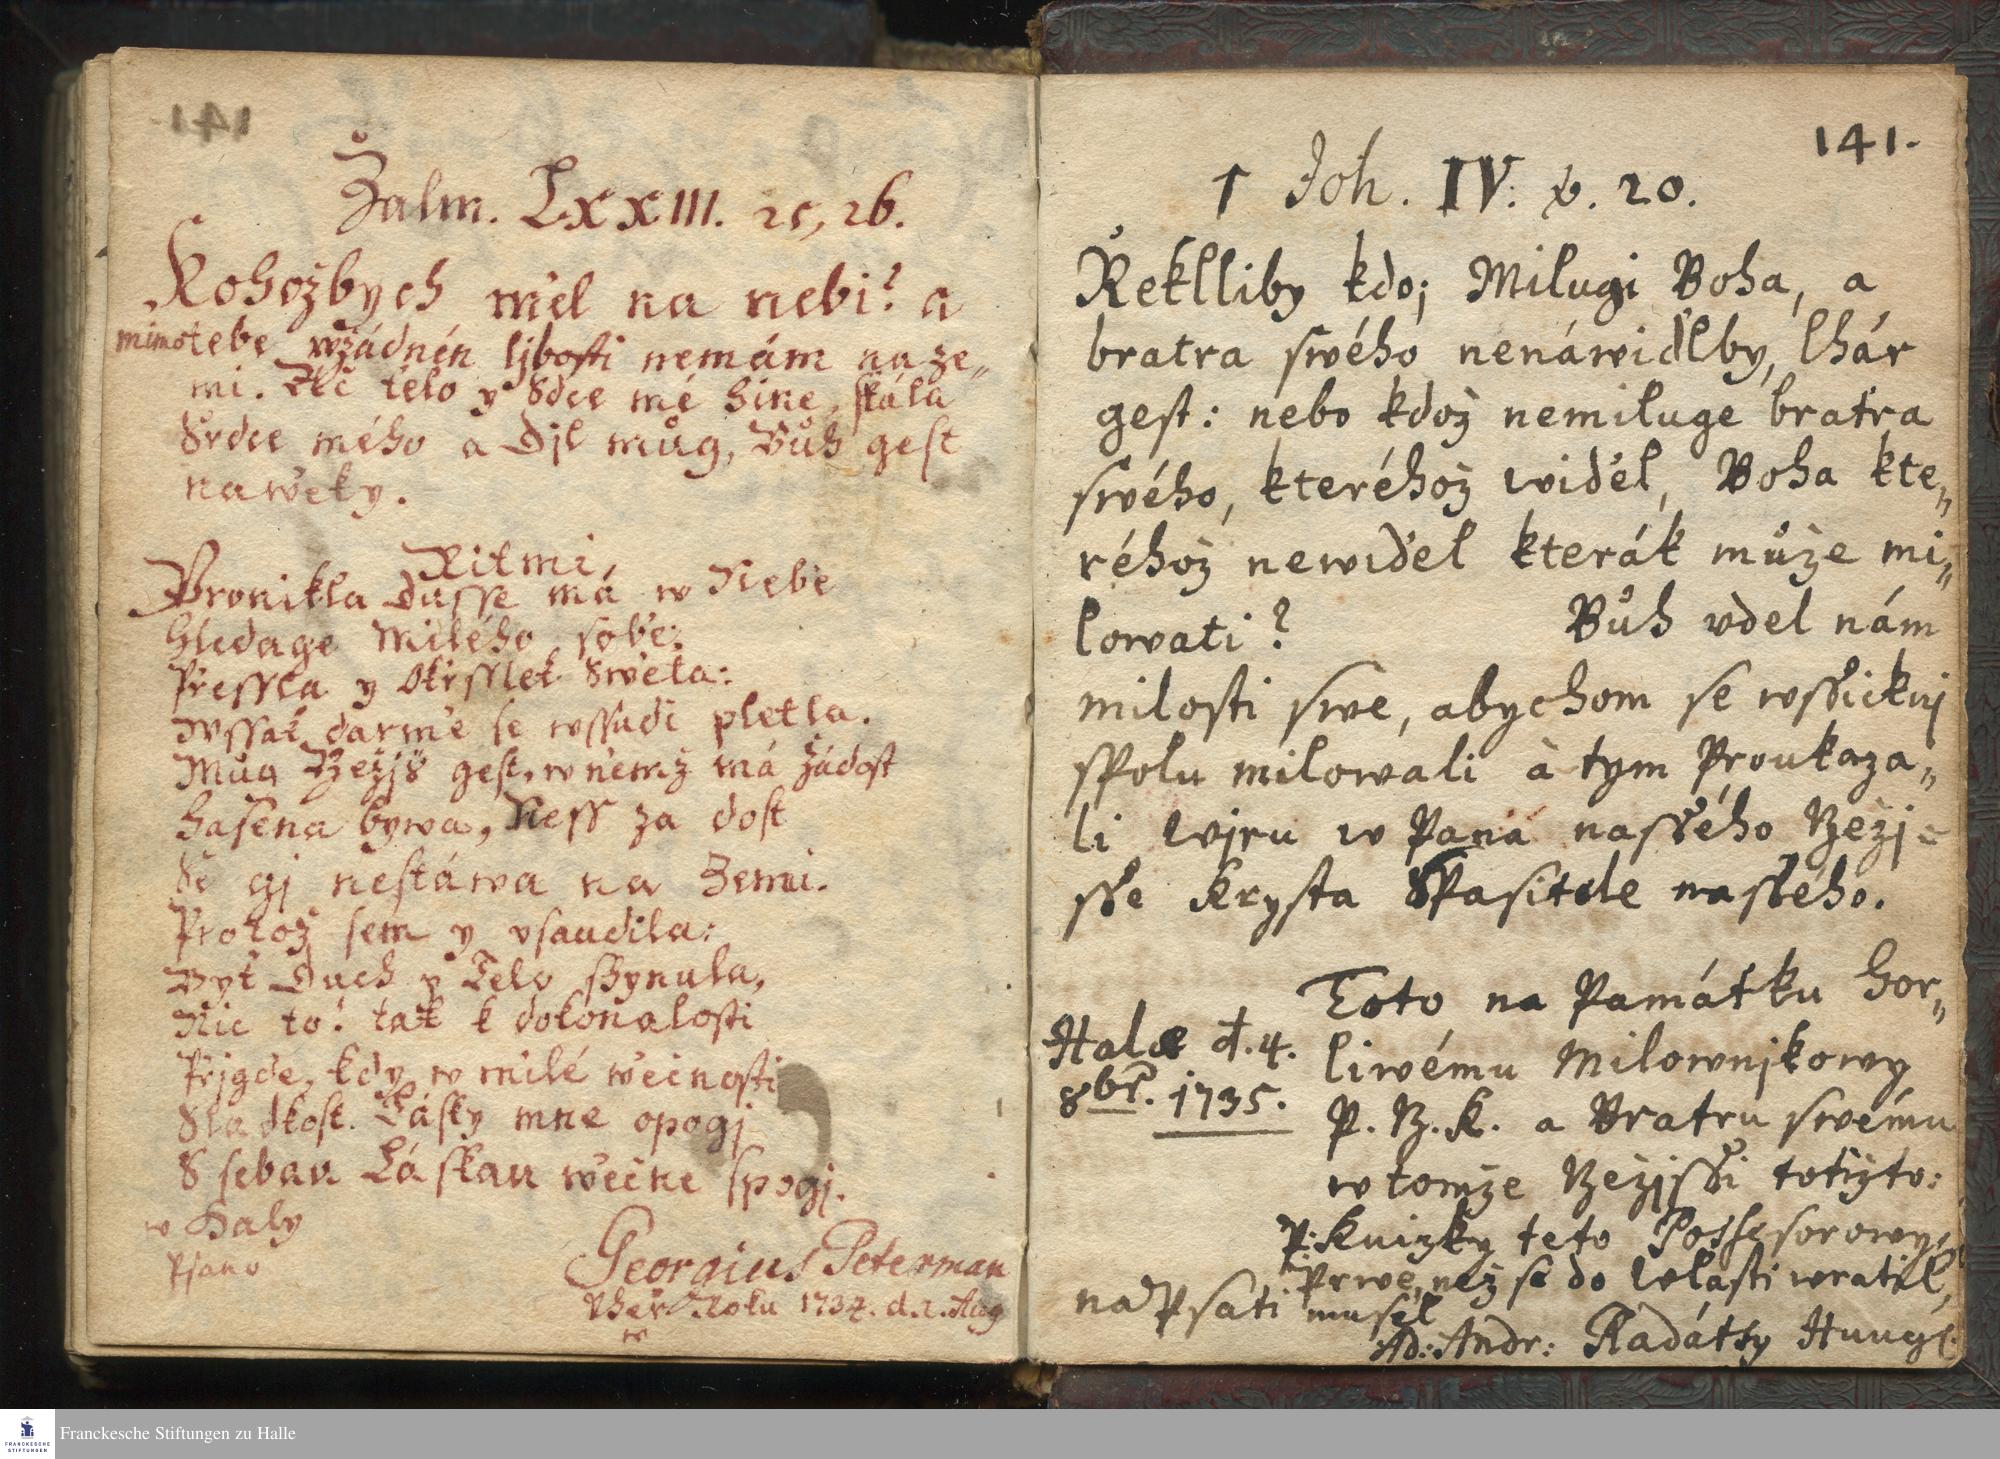 Žalm. LXXIII. 25, 26.
Kohožbych měl na nebi? a
mimo tebe w žádném ljbosti nemám na ze„
mi. Ač tělo y Sdce mé hine, skála
Srdce mého a Djl můg, Bůh gest
na wěky.
Ritmi,
Pronikla Dusse má w Nebe
Hledage Milého sobě:
Pressla y Okrsslek Swěta:
Wssak darmě se wssudi pletla.
Můg Gežjs gest, w němž má žádost
hasena bywa, Ness za dost
Se gj nestáwa na Zemi.
Protož sem y usaudila:
Byt Duch y Telo shynula,
Nic to! tak k dokonalosti
Přigde, kdy w milé wěčnosti
Sladkost. Lásky mne opogj
S sebau Láskau wěčne spogj.
w Haly
Psano
Georgius Peterman
Uher Roku 1734. d. 2. Aug
141.
1 Joh. IV: v. 20.
Řeklliby kdo; Milugi Boha, a
bratra swého nenáwiďelby, lhár
gest: nebo kdož nemiluge bratra
swého, kteréhož widěl, Boha kte„
réhož newiděl kterák může mi„
lowati? Bůh uděl nám
milosti swe, abychom se wssickni
spolu milowali à tym Proukaza„
li wjru w Pana nasseho Gežj„
sse Krysta Spasitele nasseho.
Toto na Památku Hor„
liwému Milownjkowy
P. G. K. a Bratru swému
w tomže Gežjssi totižto:
P: Knizky teto Possesorowy,
Prwe, než se do Wlasti wratil,
napsati musel
Ad: Andr: Radátsy Hung.
Halæ d. 4.
8br. 1735.
Franckesche Stiftungen zu Halle
FRANCKESCHE
STIFTUNGEN